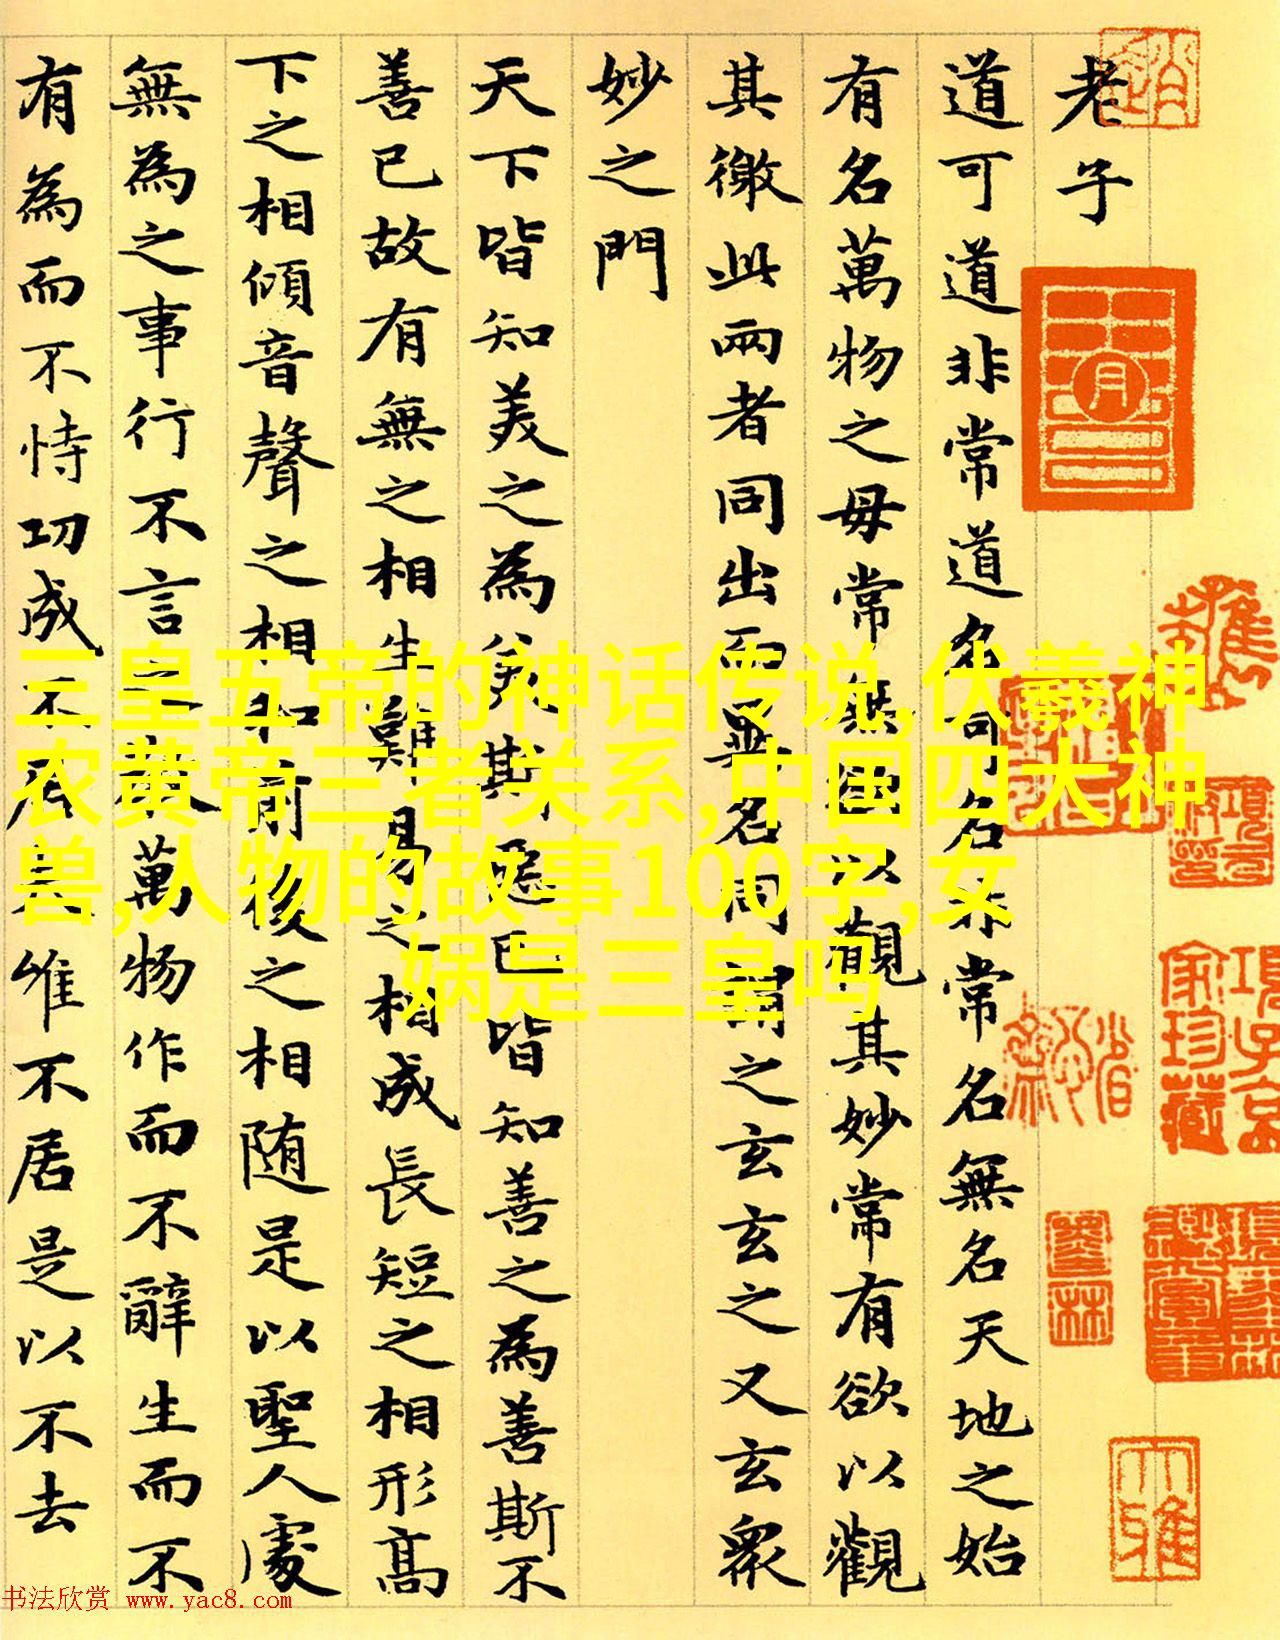 老子
道可道非常道名可名非常名無名天地之始
有名萬物之母常無欲以觀其妙常有欲以觀
其徼此兩者同出而異名同謂之玄玄之又玄衆
妙之門
天下皆知美之為美斯惡已皆知善之為善斯不
善已故有無之相生難易之相成長短之相形高
下之相傾音聲之相和前後之相随是以聖人處
無為之事行不言之教萬物作而不辭生而不
有為而不恃功成不居夫惟不居是以不去
三皇五帝的神话传说,伏羲神
农黄帝三者关系,中国四大神
兽,人物的故事100字,女
娲是三皇吗
項子京
家珍藏
书法欣赏 www.yac8.com